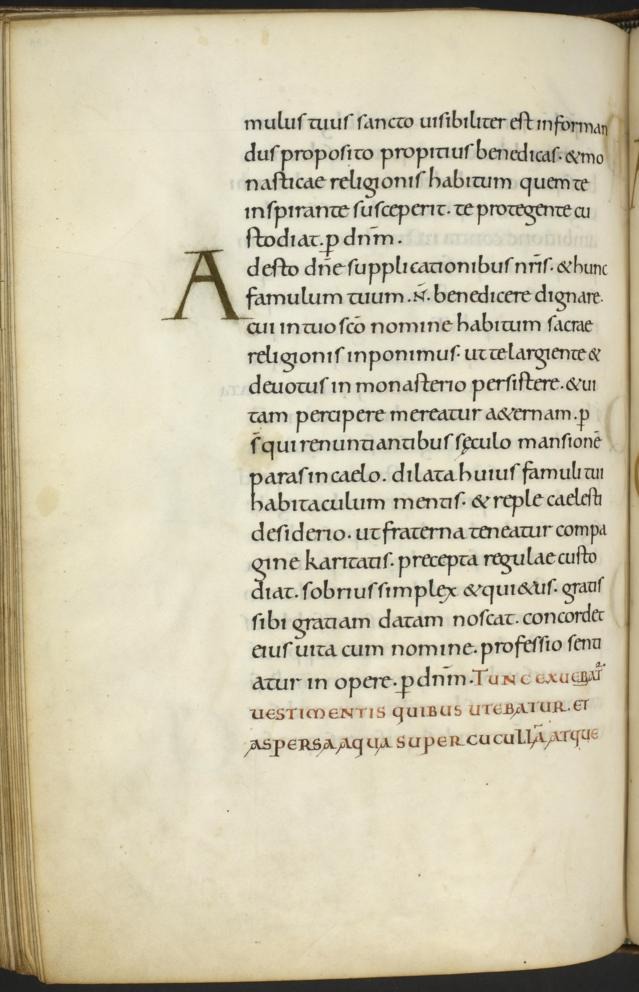 mulus tuus sancto uisibiliter est informan
dus proposito propitius benedicas. & mo
nasticae religionis habitum quem te
inspirante susceperit. te protegente cu
stodiat. p̄ dnm̄.
Adesto dn̄e supplicationibus nr̄is. & hunc
famulum tuum .N̄. benedicere dignare.
cui in tuo sc̄o nomine habitum sacrae
religionis inponimus. ut te largiente &
deuotus in monasterio persistere. & ui
tam percipere mereatur a&ernam. p̄
D̄s qui renuntiantibus sęculo mansionē
paras in caelo. dilata huius famuli tui
habitaculum mentis. & reple caelesti
desiderio. ut fraterna teneatur compa
gine karitatis. precepta regulae custo
diat. sobrius simplex & qui&us. gratis
sibi gratiam datam noscat. concordet
eius uita cum nomine. professio senti
atur in opere. p̄ dnm̄. TUNC EXUEBAT
UESTIMENTIS QUIBUS UTEBATUR. ET
ASPERSA AQUA SUPER CUCULLĀ ATQUE